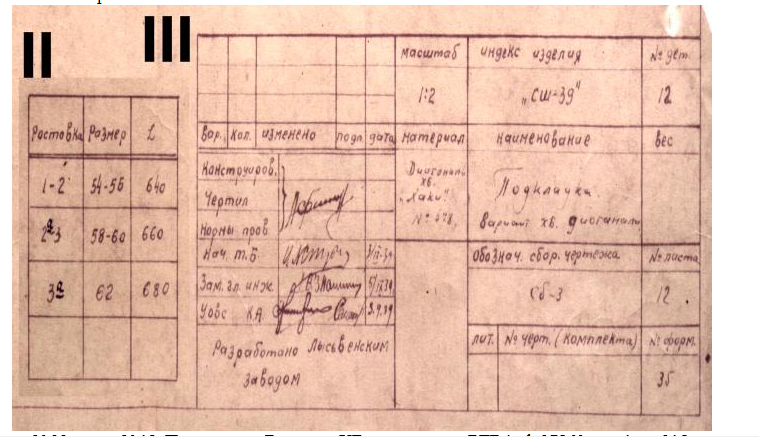 II
III
Ростовка Размер L
1-2 54-56 640
2-3 58-60 660
3 62 680
масштаб индекс изделия № дет.
1:2 „СШ-39" 12
вар. кол. изменено подп дата материал наименование вес
Конструиров.
Чертил
Нормы пров.
Нач. т.б
Зам. гл. инж
Увбс КА 3.9.39
Диагональ
хв.
„Хаки"
Подкладка
вариант хв. диогонали
обознач. сбор. чертежа № листа
Сб-3 12
лит. № черт. (комплекта) № форм.
35
Разработано Лысьвенским
заводом